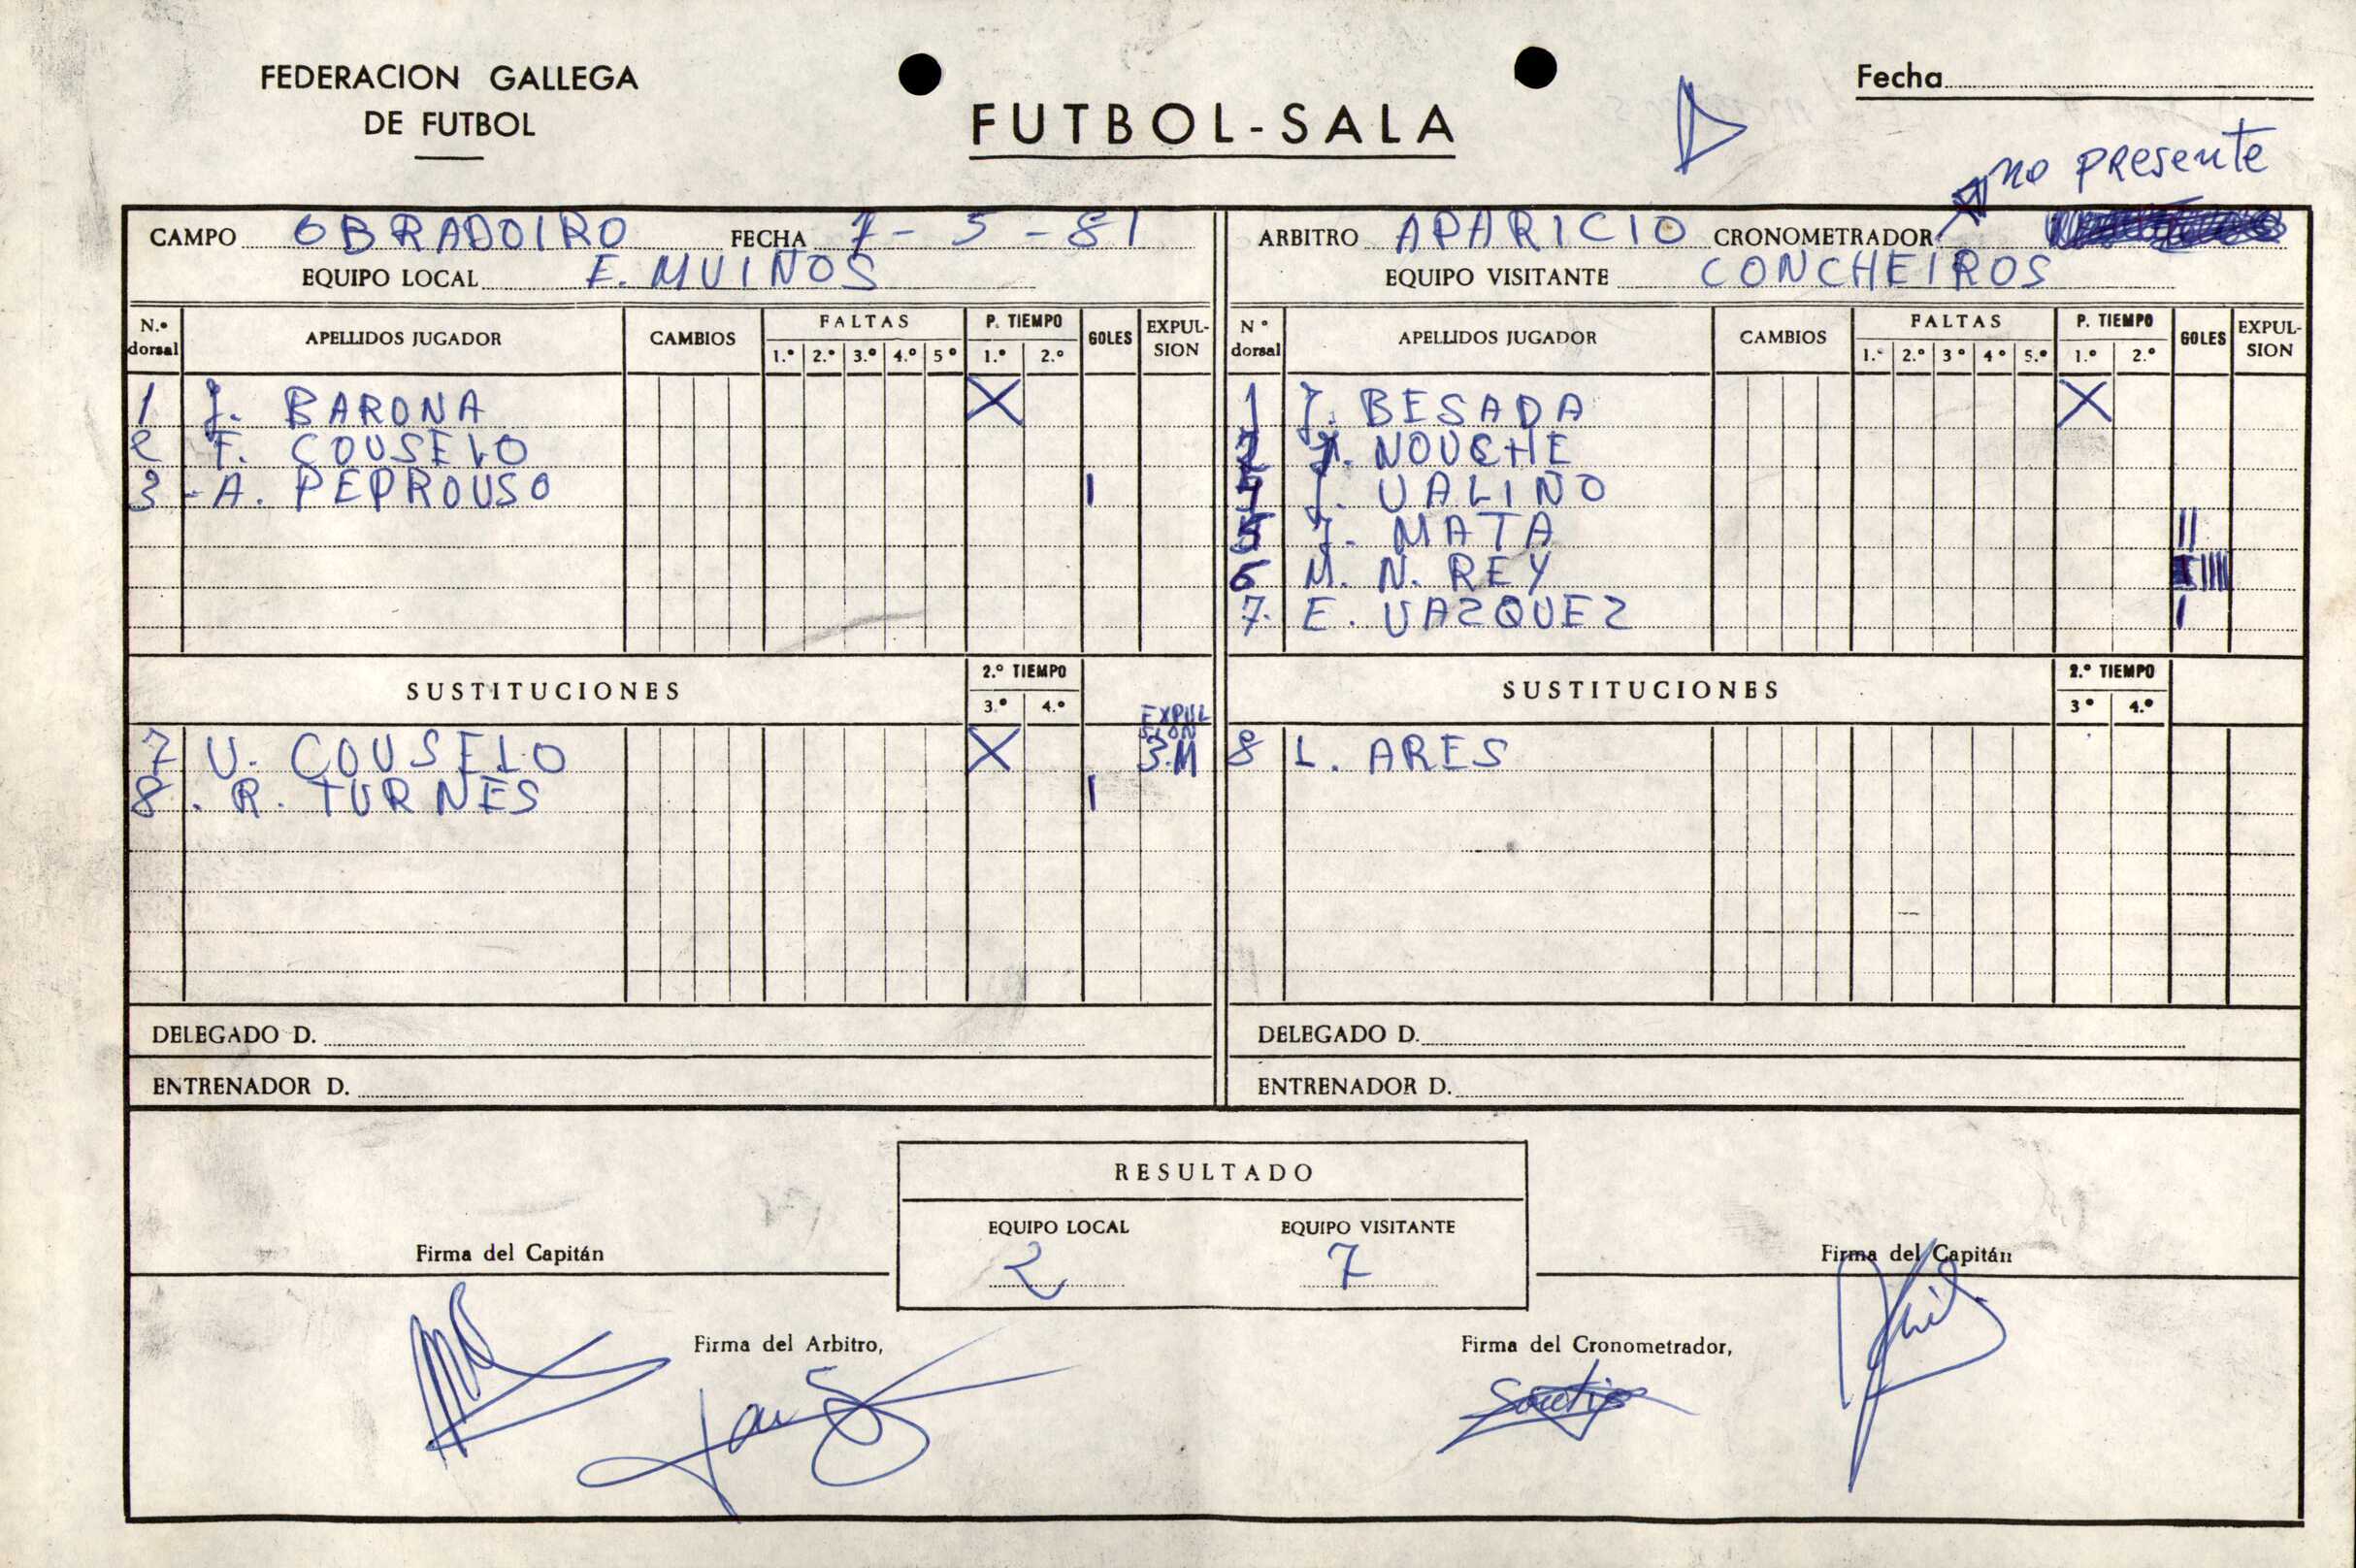 FEDERACION GALLEGA
DE FUTBOL
FUTBOL-SALA
Fecha
no PRESENTE
CAMPO OBRADOIRO FECHA 7-5-81
EQUIPO LOCAL E. MUIÑOS
N.º dorsal APELLIDOS JUGADOR CAMBIOS FALTAS 1.º 2.º 3.º 4.º 5º P. TIEMPO 1.º 2.º GOLES EXPULSION
1 J. BARONA X
2 F. COUSELO
3 - A. PEPROUSO I
SUSTITUCIONES 2.º TIEMPO 3.º 4.º
EXPULSION
7 U. COUSELO X 3.M
8. R. TURNES I
DELEGADO D.
ENTRENADOR D.
ARBITRO APARICIO CRONOMETRADOR
EQUIPO VISITANTE CONCHEIROS
Nº dorsal APELLIDOS JUGADOR CAMBIOS FALTAS 1.º 2.º 3º 4º 5.º P. TIEMPO 1.º 2.º GOLES EXPULSION
1 J. BESADA X
2 J. NOUCHE
4 J. VALIÑO
5 J. MATA II
6 M. N. REY IIII
7. E. VAZQUEZ I
SUSTITUCIONES 2.º TIEMPO 3º 4.º
8 L. ARES
DELEGADO D.
ENTRENADOR D.
RESULTADO
EQUIPO LOCAL EQUIPO VISITANTE
2 7
Firma del Capitán
Firma del Capitán
Firma del Arbitro,
Firma del Cronometrador,